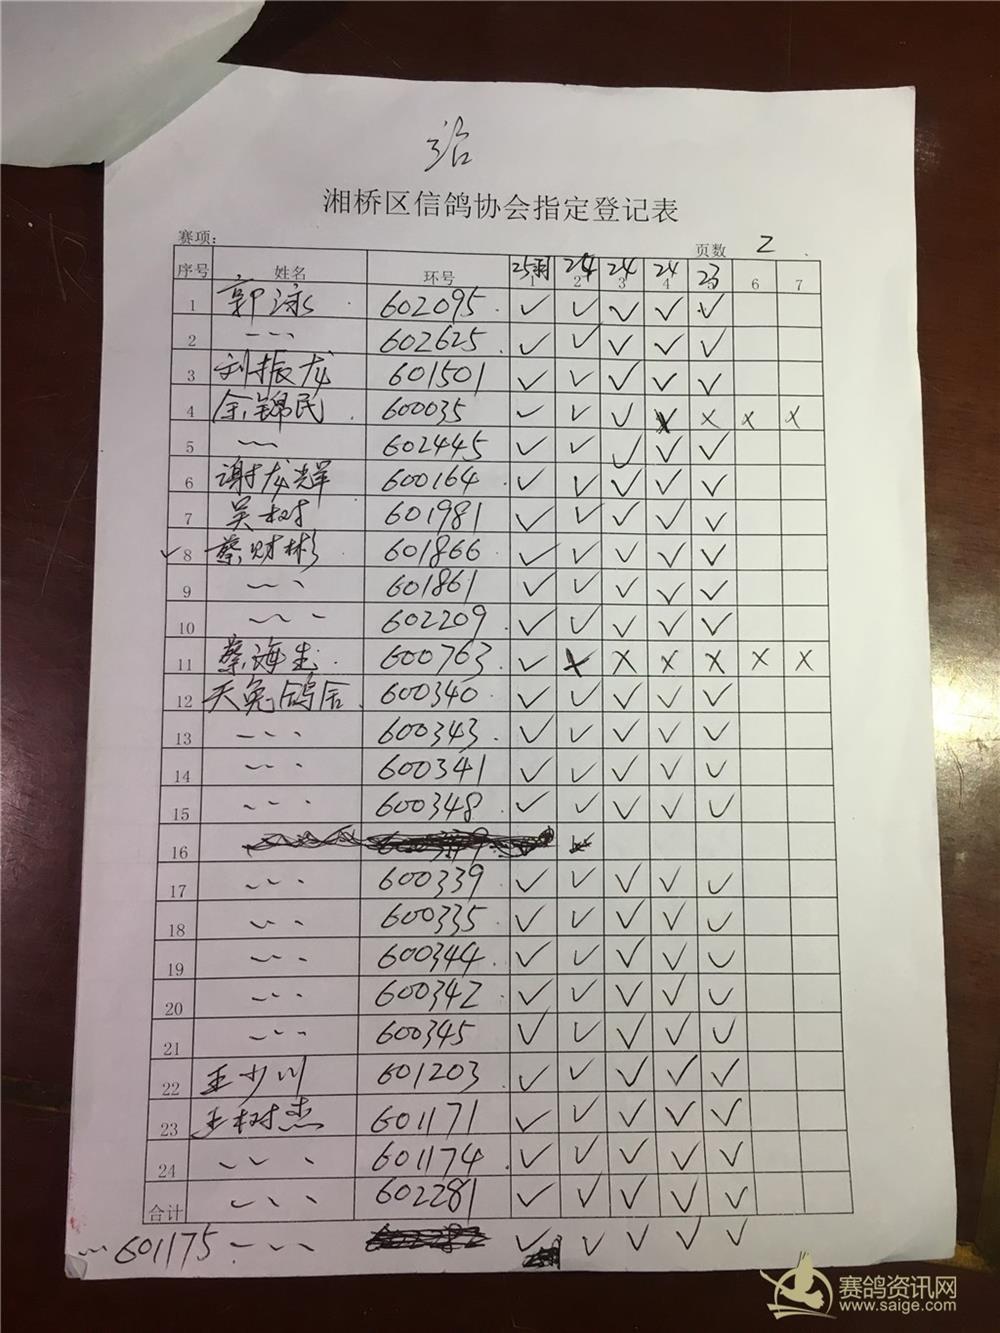 湘桥区信鸽协会指定登记表
赛项： 页数 2
序号 姓名 环号 1 2 3 4 5 6 7
25羽 24 24 24 23
1 郭泳 602095 ✓ ✓ ✓ ✓ ✓
2 602625 ✓ ✓ ✓ ✓ ✓
3 刘振龙 601501 ✓ ✓ ✓ ✓ ✓
4 余锦民 600035 ✓ ✓ ✓ x x x x
5 602445 ✓ ✓ ✓ ✓ ✓
6 谢龙辉 600164 ✓ ✓ ✓ ✓ ✓
7 吴树 601981 ✓ ✓ ✓ ✓ ✓
✓ 8 蔡财彬 601866 ✓ ✓ ✓ ✓ ✓
9 601861 ✓ ✓ ✓ ✓ ✓
10 602209 ✓ ✓ ✓ ✓ ✓
11 蔡海生 600763 ✓ x x x x x x
12 天兔鸽舍 600340 ✓ ✓ ✓ ✓ ✓
13 600343 ✓ ✓ ✓ ✓ ✓
14 600341 ✓ ✓ ✓ ✓ ✓
15 600348 ✓ ✓ ✓ ✓ ✓
16
17 600339 ✓ ✓ ✓ ✓ ✓
18 600335 ✓ ✓ ✓ ✓ ✓
19 600344 ✓ ✓ ✓ ✓ ✓
20 600342 ✓ ✓ ✓ ✓ ✓
21 600345 ✓ ✓ ✓ ✓ ✓
22 王少川 601203 ✓ ✓ ✓ ✓ ✓
23 王树杰 601171 ✓ ✓ ✓ ✓ ✓
24 601174 ✓ ✓ ✓ ✓ ✓
合计 602281 ✓ ✓ ✓ ✓ ✓
601175 ✓ ✓ ✓ ✓ ✓
赛鸽资讯网
www.saige.com